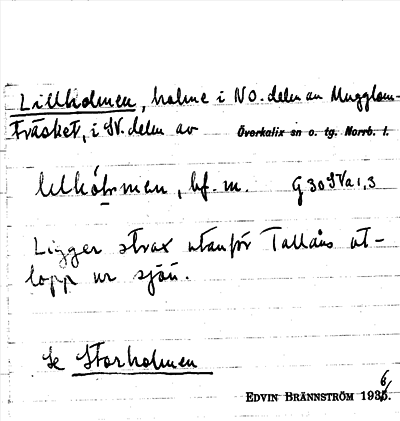 Lillholmen, holme i NO. delen av Mugglom-
träsket, i SV. delen av Överkalix sn o. tg. Norrb. l.
bf. m. G 30 SVa 1,3
Ligger strax utanför Tallåns ut-
lopp ur sjön.
Se Storholmen
EDVIN BRÄNNSTRÖM 1936.